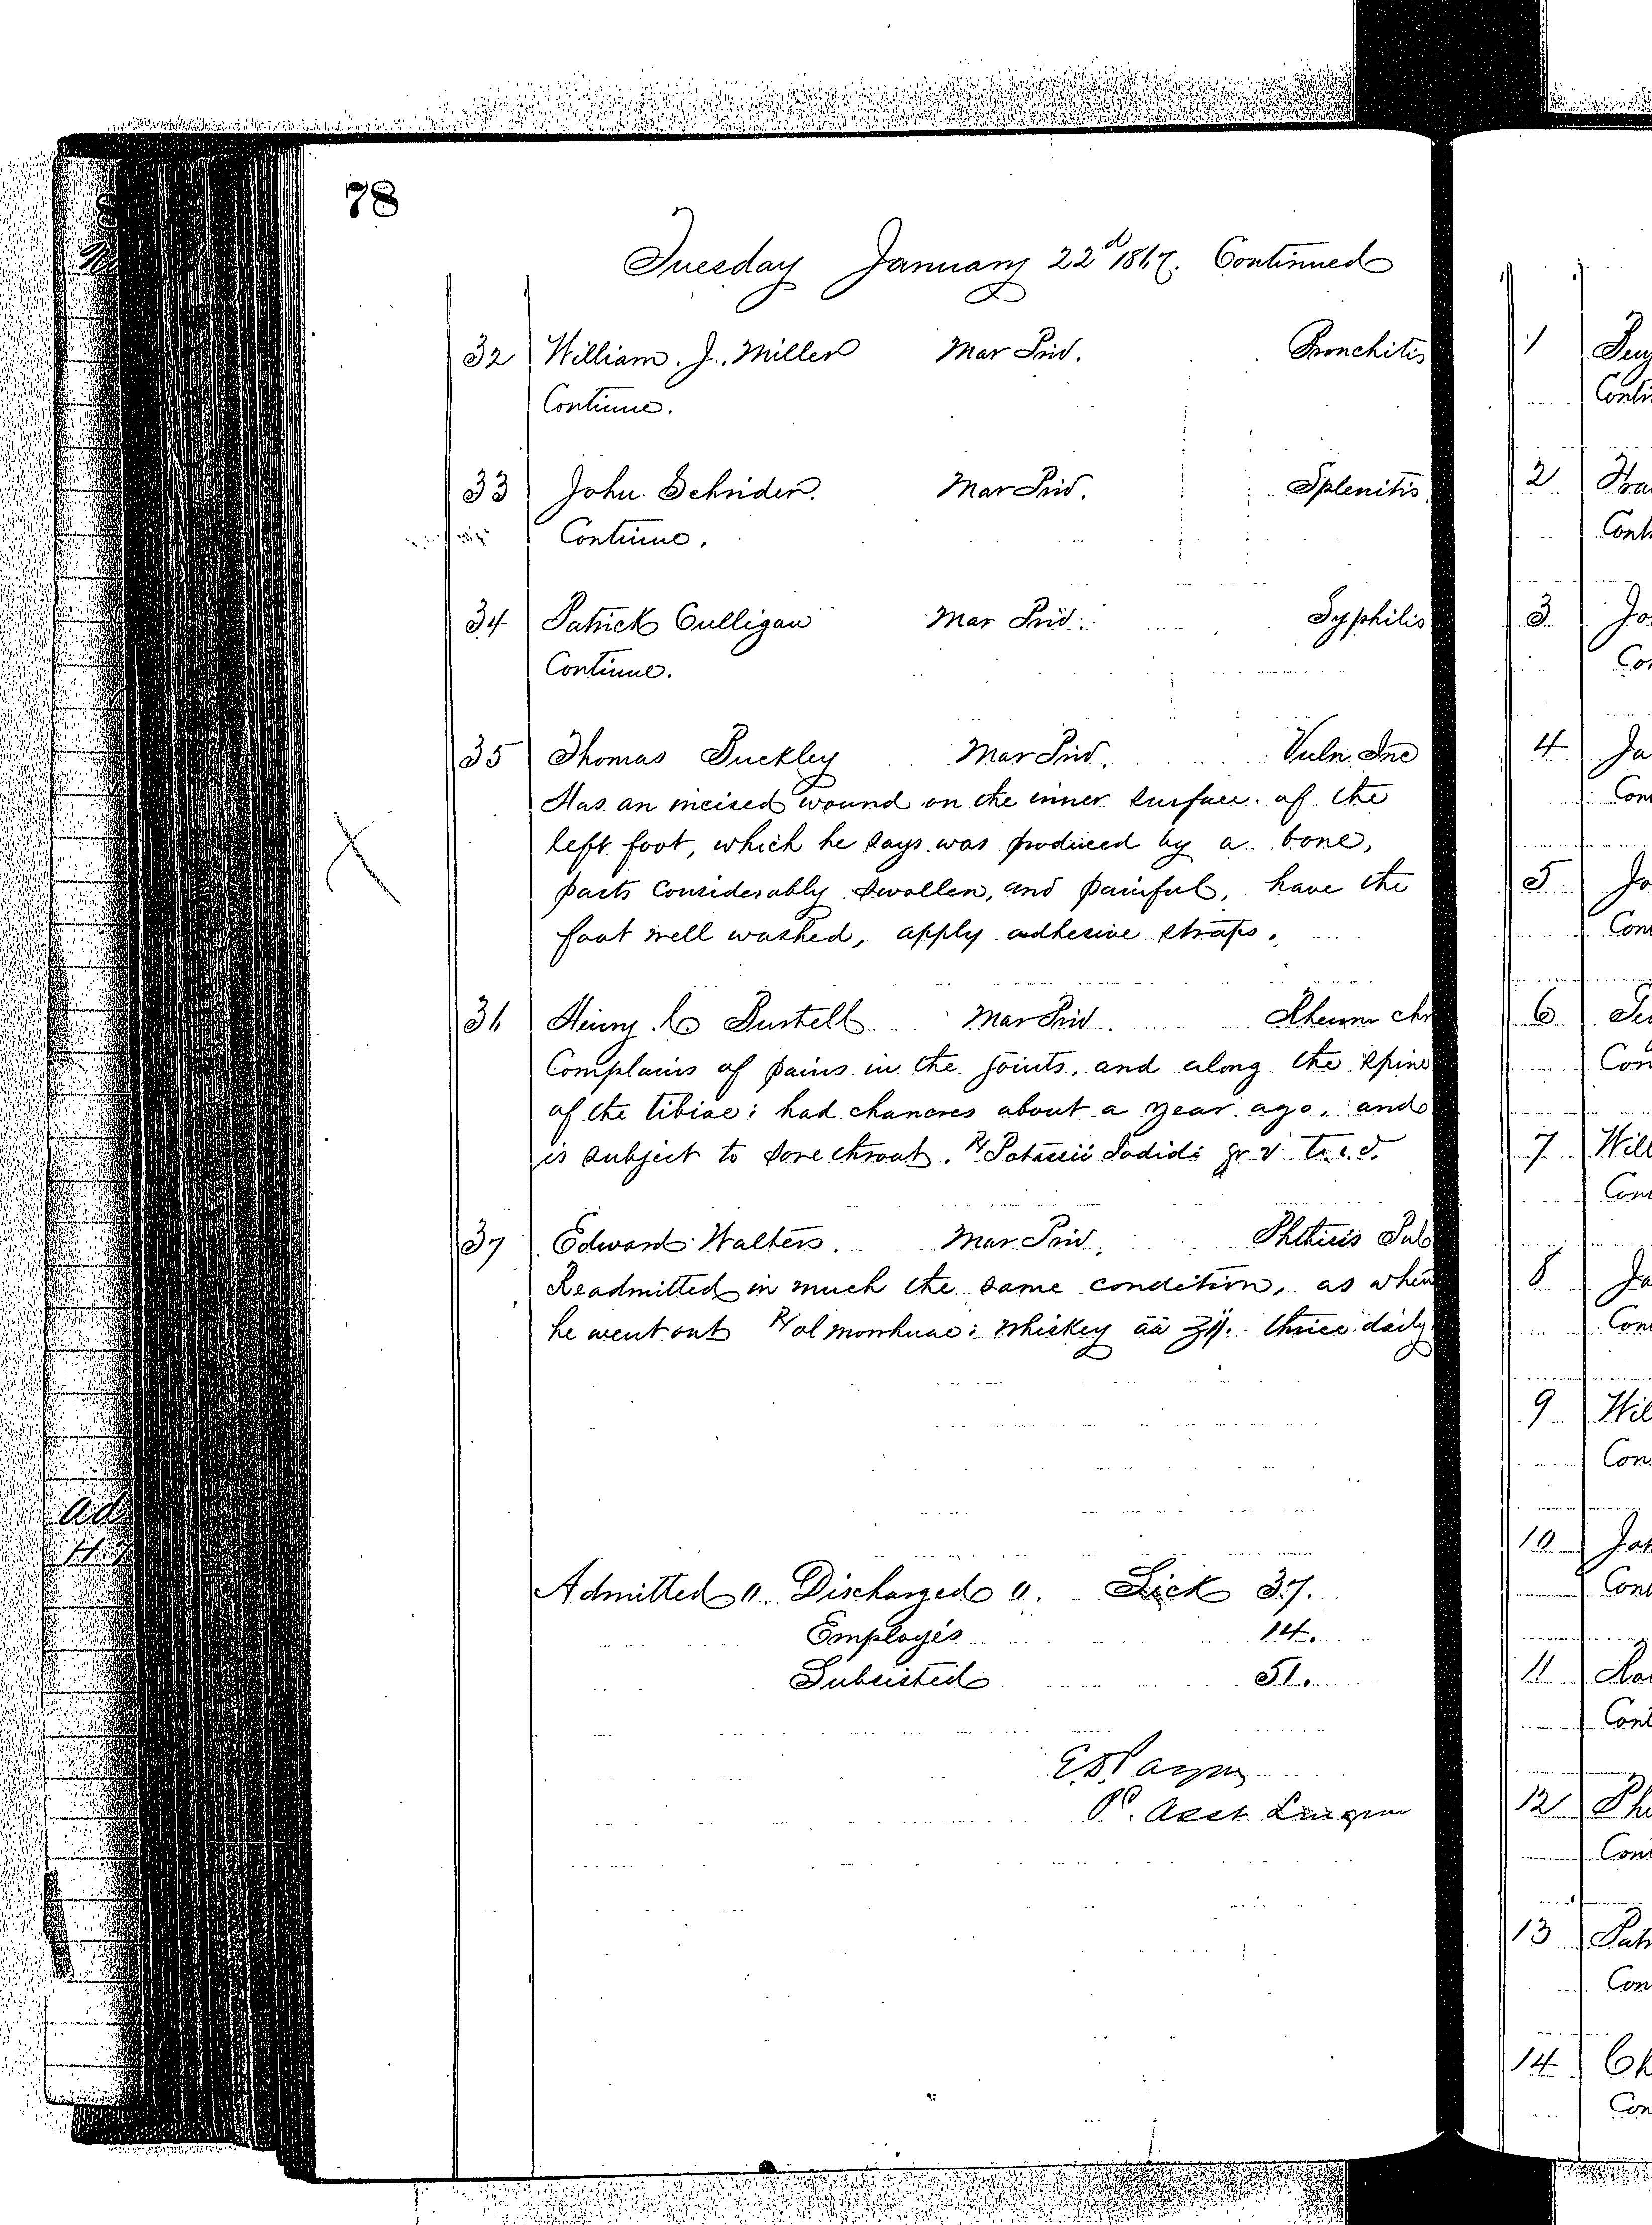 78
Tuesday January 22d 1867. Continued
32 William. J. Miller Mar Priv. Bronchitis
Continue.
33 John Schrider. Mar Priv. Splenitis
Continue.
34 Patrick Culligan Mar Priv. Syphilis
Continue.
35 Thomas Buckley Mar Priv. Vuln. Inc
Has an incised wound on the inner surface of the
left foot, which he says was produced by a bone,
parts considerably swollen, and painful, have the
foot well washed, apply adhesive straps.
36 Henry C Mar Priv. Rheum chr
Complains of pains in the joints, and along the spine
of the tibiae; had chancres about a year ago, and
is subject to sore throat. ℞ Potassii Iodidi gr v t.i.d.
37 Edward Walters. Mar Priv. Phthisis Pul
Readmitted in much the same condition, as when
he went out ℞ ol morrhuae: whiskey āā ʒij. thrice daily
Admitted 0. Discharged 0. Sick 37.
Employés 14.
Subsisted 51.
P. Asst Surgeon
1
Conti
2
Cont
3 Jo
Con
4 Ja
Con
5 Jo
Con
6
Con
7 Will
Con
8 Ja
Con
9 Wil
Con
10 Joh
Con
11
Cont
12
Con
13 Pat
Con
14 Ch
Con
Ad